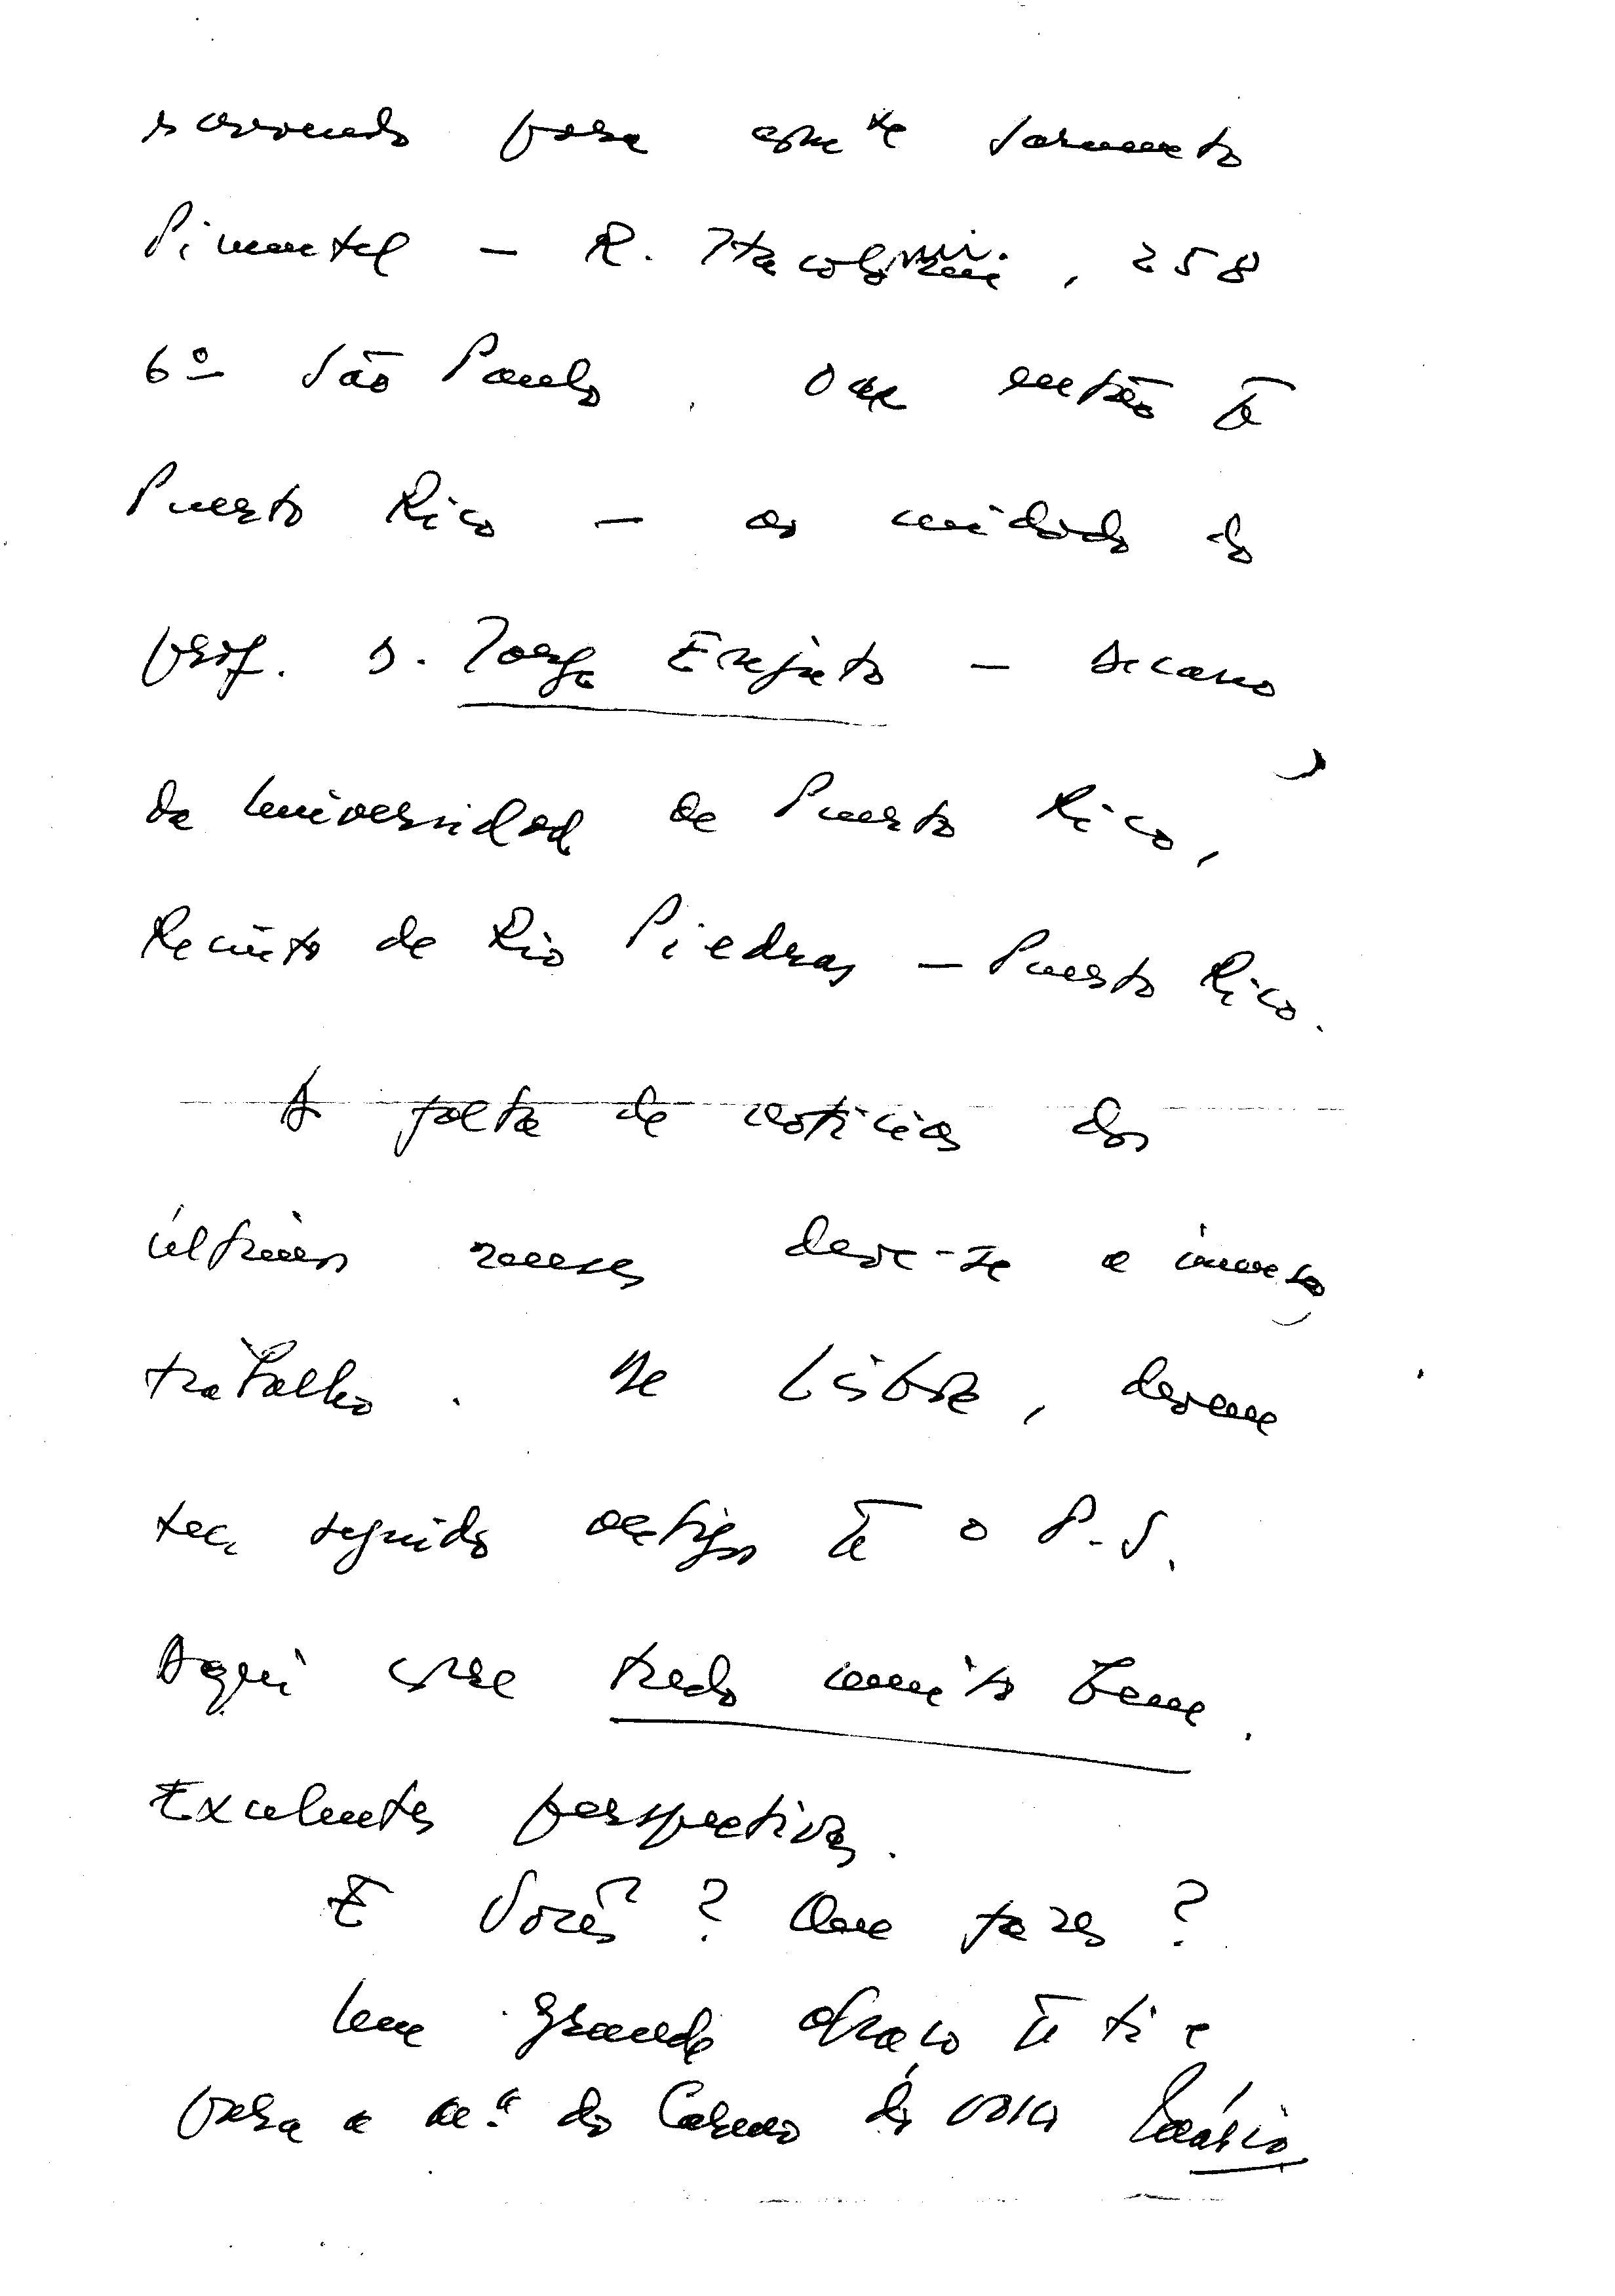 escrevendo para com.te Sarmento
Pimentel – R. Itacolomi, 258
6º São Paulo. Ou então p.ª
Puerto Rico – ao cuidado do
prof. D. Jorge Enjuto – Decano
da Universidad de Puerto Rico,
Recinto de Rio Piedras – Puerto Rico.
A falta de notícias dos
últimos meses deve-se a imenso
trabalho. De Lisboa, devem
ter seguido artigos p.ª o P.S.
Aqui corre tudo muito bem.
Excelentes perspectivas.
E Vocês? Que fazes?
Um grande abraço p.ª ti e
para a M.ª do Carmo do vosso Mário